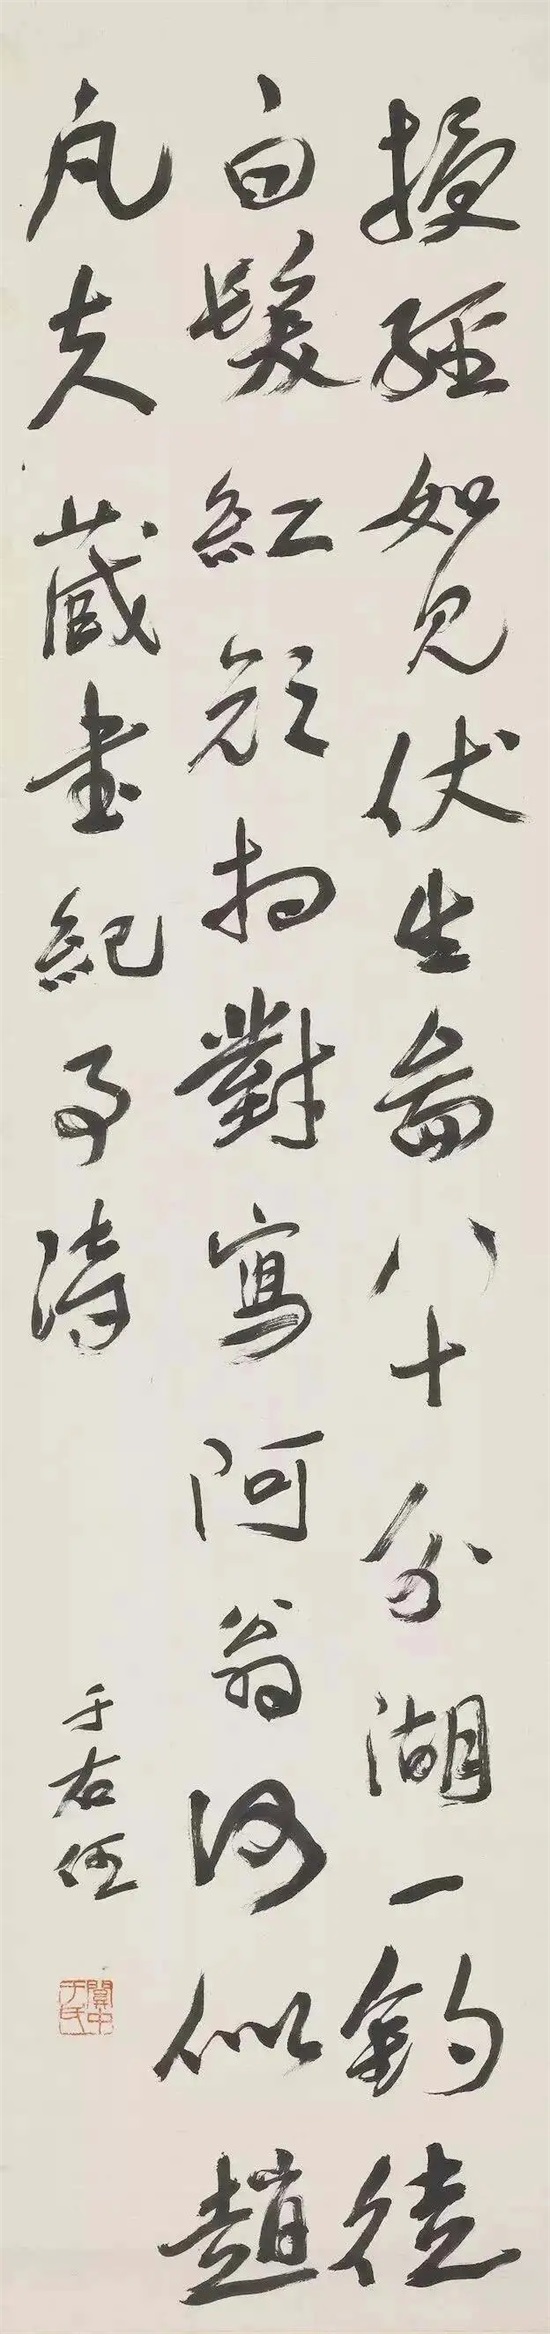 授經如見伏生圖八十分湖一釣徒
白髮紅顏相對寫阿翁何似趙
凡夫 藏書紀事詩
于右任
關中于氏